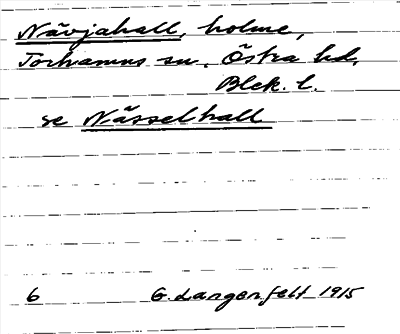 Nävjahall, holme,
Torhamns sn, Östra hd,
Blek. l.
se Nässelhall
6 G. Langenfelt 1915